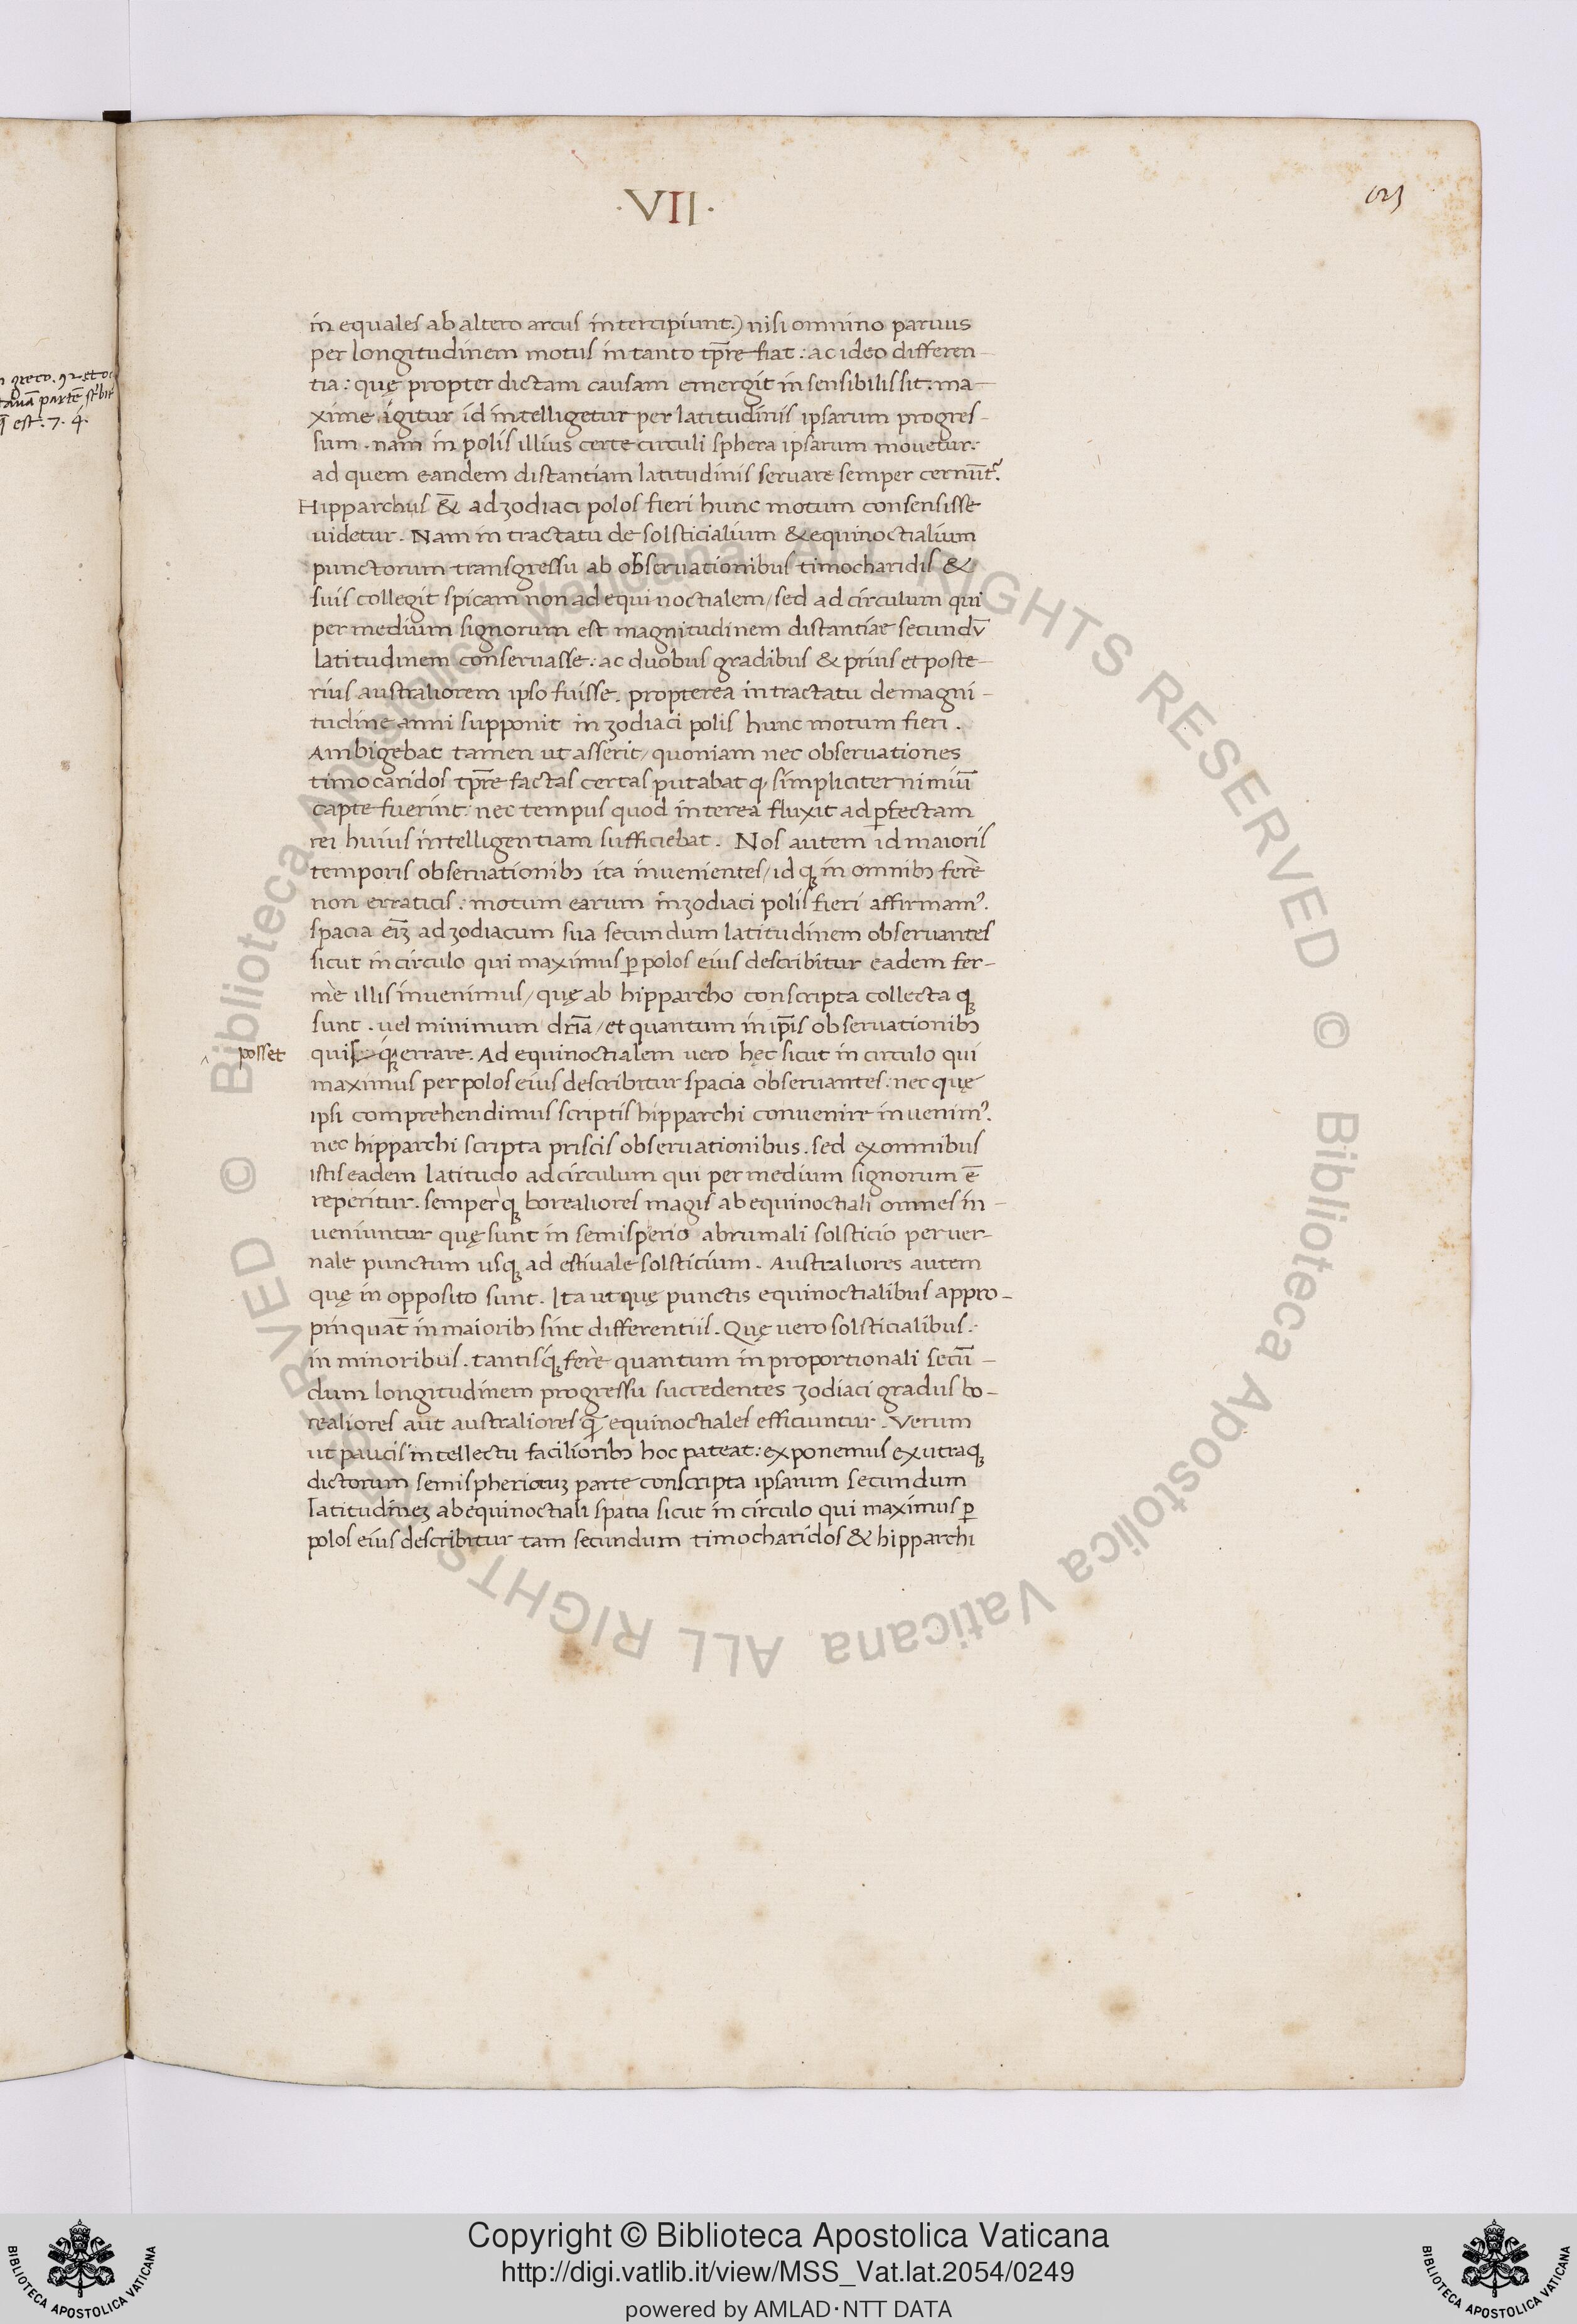 ·VII·
in equales ab altero arcus intercipiunt.) nisi omnino paruus
per longitudinem motus in tanto tp̄re fiat: ac ideo differen-
tia: quę propter dictam causam emergit insensibilis sit: ma-
xime igitur id intelligetur per latitudinis ipsarum progres-
sum. nam in polis illius certe circuli sphera ipsarum mouetur:
ad quem eandem distantiam latitudinis seruare semper cernūt᷑.
Hipparchus &̄ ad zodiaci polos fieri hunc motum consensisse
uidetur. Nam in tractatu de solsticialium & equinoctialium
punctorum transgressu ab observationibus timocharidis &
suis collegit spicam non ad equinoctialem/ sed ad circulum qui
per medium signorum est magnitudinem distantiae secundū
latitudinem conseruasse: ac duobus gradibus & prius et poste-
rius australiorem ipso fuisse. propterea in tractatu de magni-
tudine anni supponit in zodiaci polis hunc motum fieri.
Ambigebat tamen ut asserit/ quoniam nec observationes
timocaridos tp̄re factas certas putabat ꝙ simpliciter nimiū
capte fuerint: nec tempus quod interea fluxit ad ꝑfectam
rei huius intelligentiam sufficiebat. Nos autem id maioris
temporis observationibꝫ ita invenientes/ idqꝫ in omnibꝫ ferè
non erraticis: motum earum in zodiaci polis fieri affirmamꝰ.
spacia em̄ ad zodiacum sua secundum latitudinem observantes
sicut in circulo qui maximus ꝑ polos eius describitur eadem fer-
mè illis invenimus/ quę ab hipparcho conscripta collectaqꝫ
sunt. uel minimum dr̄iā/ et quantum in ip̄is observationibꝫ
^ posset quisqꝫ errare. Ad equinoctialem uero hęc sicut in circulo qui
maximus per polos eius describitur spacia observantes: nec quę
ipsi comprehendimus scriptis hipparchi convenire invenimꝰ.
nec hipparchi scripta priscis observationibus. sed ex omnibus
istis eadem latitudo ad circulum qui per medium signorum ē
reperitur. semperqꝫ borealiores magis ab equinoctiali omnes in-
veniuntur quę sunt in semisperio a brumali solsticio per ver-
nale punctum usqꝫ ad estivale solsticium. Australiores autem
quę in opposito sunt. Ita ut quę punctis equinoctialibus appro-
pinquāt in maioribꝫ sint differentiis. Quę uero solsticialibus:
in minoribus. tantisqꝫ ferè quantum in proportionali secū-
dum longitudinem progressu succedentes zodiaci gradus bo-
realiores aut australiores q̄ equinoctiales efficiuntur. Verum
ut paucis intellectu facilioribꝫ hoc pateat: exponemus ex utraqꝫ
dictorum semispheriorum parte conscripta ipsarum secundum
latitudineꝫ ab equinoctiali spatia sicut in circulo qui maximus ꝑ
polos eius describitur tam secundum timocharidos & hipparchi
Copyright © Biblioteca Apostolica Vaticana
http://digi.vatlib.it/view/MSS_Vat.lat.2054/0249
powered by AMLAD·NTT DATA
BIBLIOTECA APOSTOLICA VATICANA
BIBLIOTECA APOSTOLICA VATICANA
© Biblioteca Apostolica Vaticana ALL RIGHTS RESERVED © Biblioteca Apostolica Vaticana ALL RIGHTS RESERVED